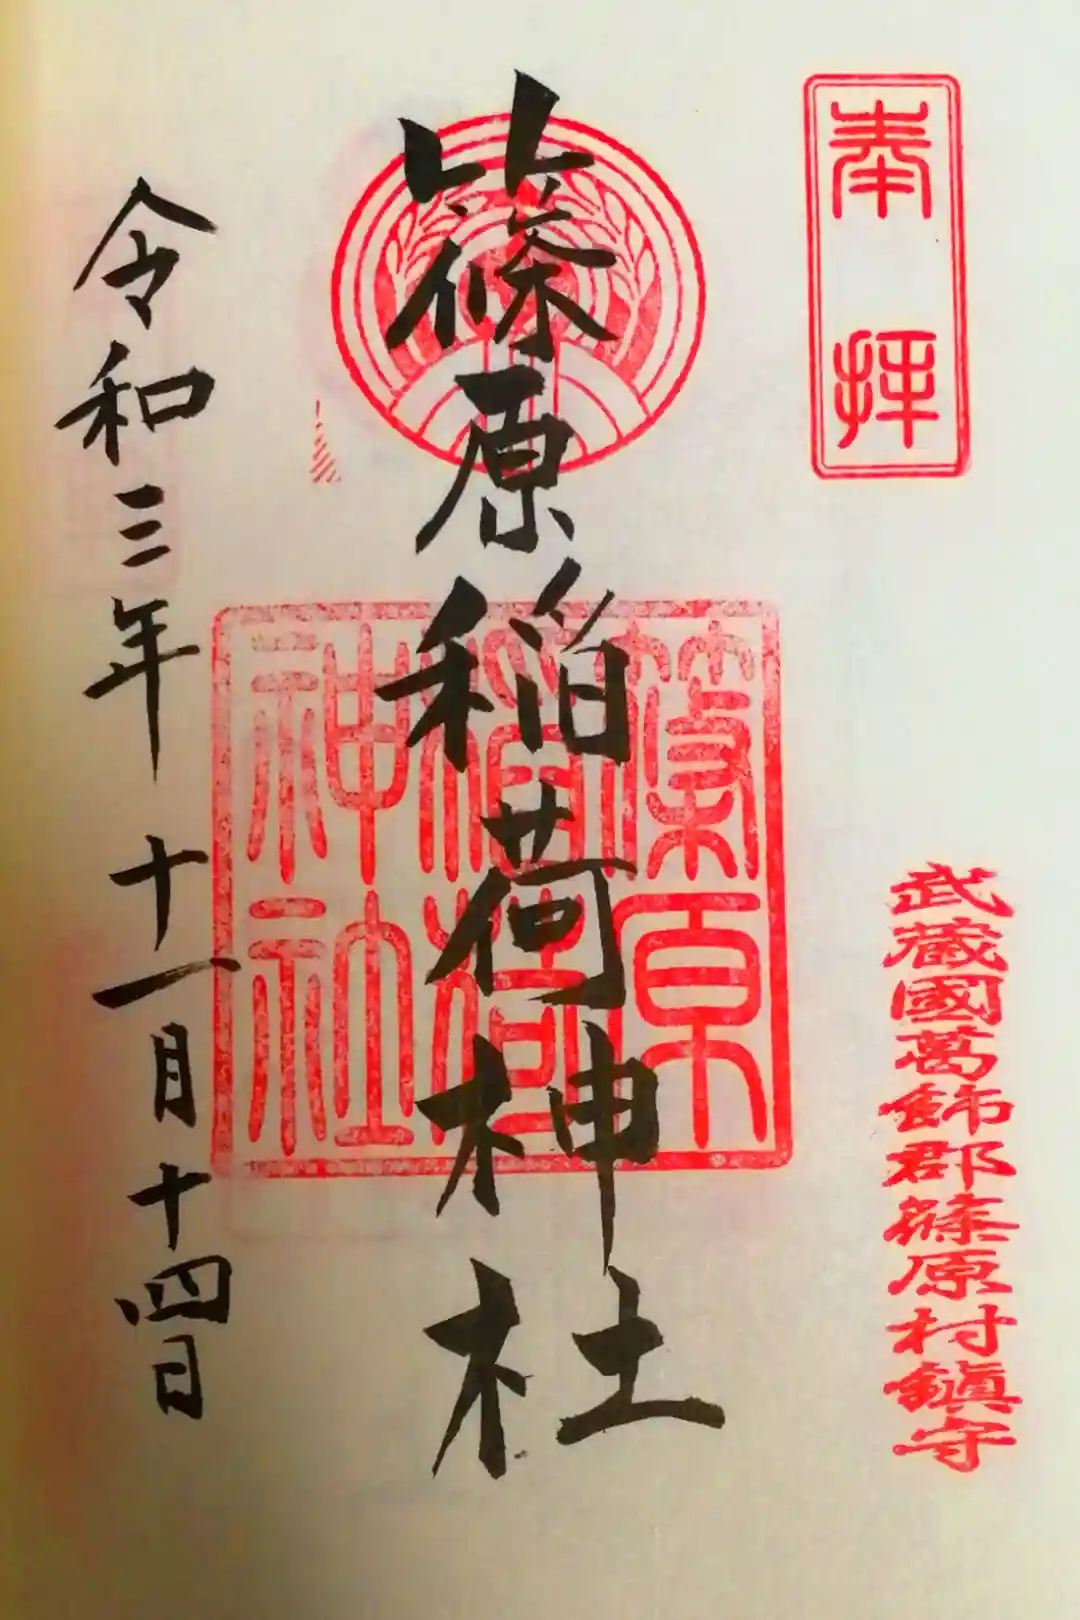 奉拝
武蔵國葛飾郡篠原村鎮守
篠原稲荷神社
篠原
稲荷
神社
令和三年 十一月十四日